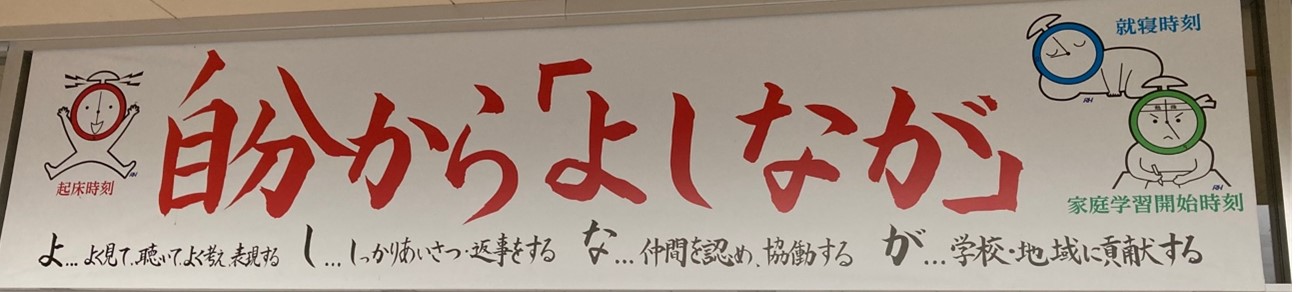 自分から「よしなが」
よ…よく見て、聴いて、よく考え、表現する
し…しっかりあいさつ・返事をする
な…仲間を認め、協働する
が…学校・地域に貢献する
起床時刻
就寝時刻
家庭学習開始時刻